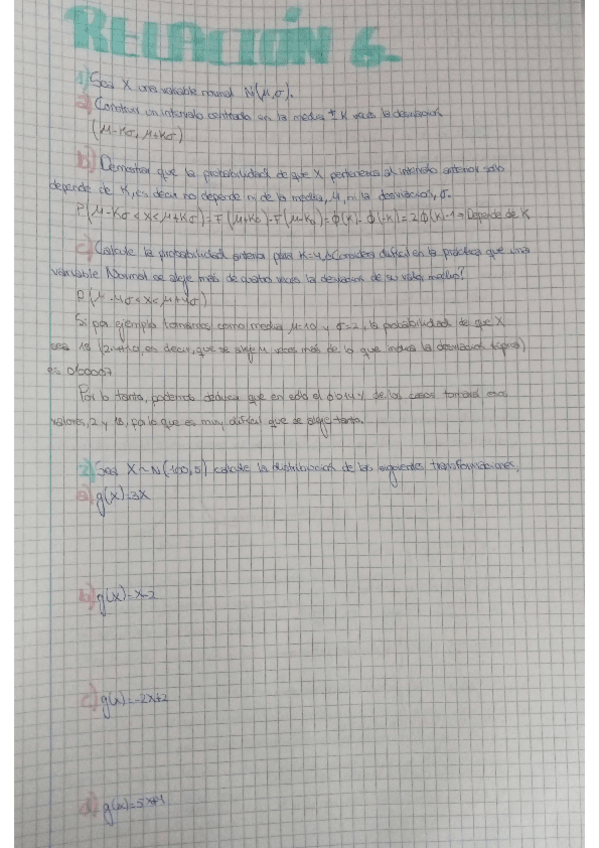 RELACIÓN 6.
1) Sea X una variable normal N(μ,σ).
a) Construir un intervalo centrado en la media ± K veces la desviación
(μ-Kσ, μ+Kσ)
b) Demostrar que la probabilidad de que X pertenezca al intervalo anterior solo
depende de K, es decir no depende ni de la media, μ, ni la desviación, σ.
P(μ-Kσ < X < μ+Kσ) = F(μ+Kσ)-F(μ-Kσ) = Φ(K)-Φ(-K) = 2Φ(K)-1 → Depende de K
c) Calcule la probabilidad anterior para K=4 ¿Considera difícil en la práctica que una
variable Normal se aleje más de cuatro veces la desviación de su valor medio?
P(μ-4σ < X < μ+4σ)
Si por ejemplo tomamos como media μ=10 y σ=2, la probabilidad de que X
sea 18 (2·4+10, es decir, que se aleje 4 veces más de lo que indica la desviación típica)
es 0'00007
Por lo tanto, podemos deducir que en solo el 0'014% de los casos tomará esos
valores, 2 y 18, por lo que es muy difícil que se aleje tanto.
2) Sea X~N(100,5) calcule la distribución de las siguientes transformaciones,
a) g(x)=3x
b) g(x)=x-2
c) g(x)=-2x+2
d) g(x)=5x+4